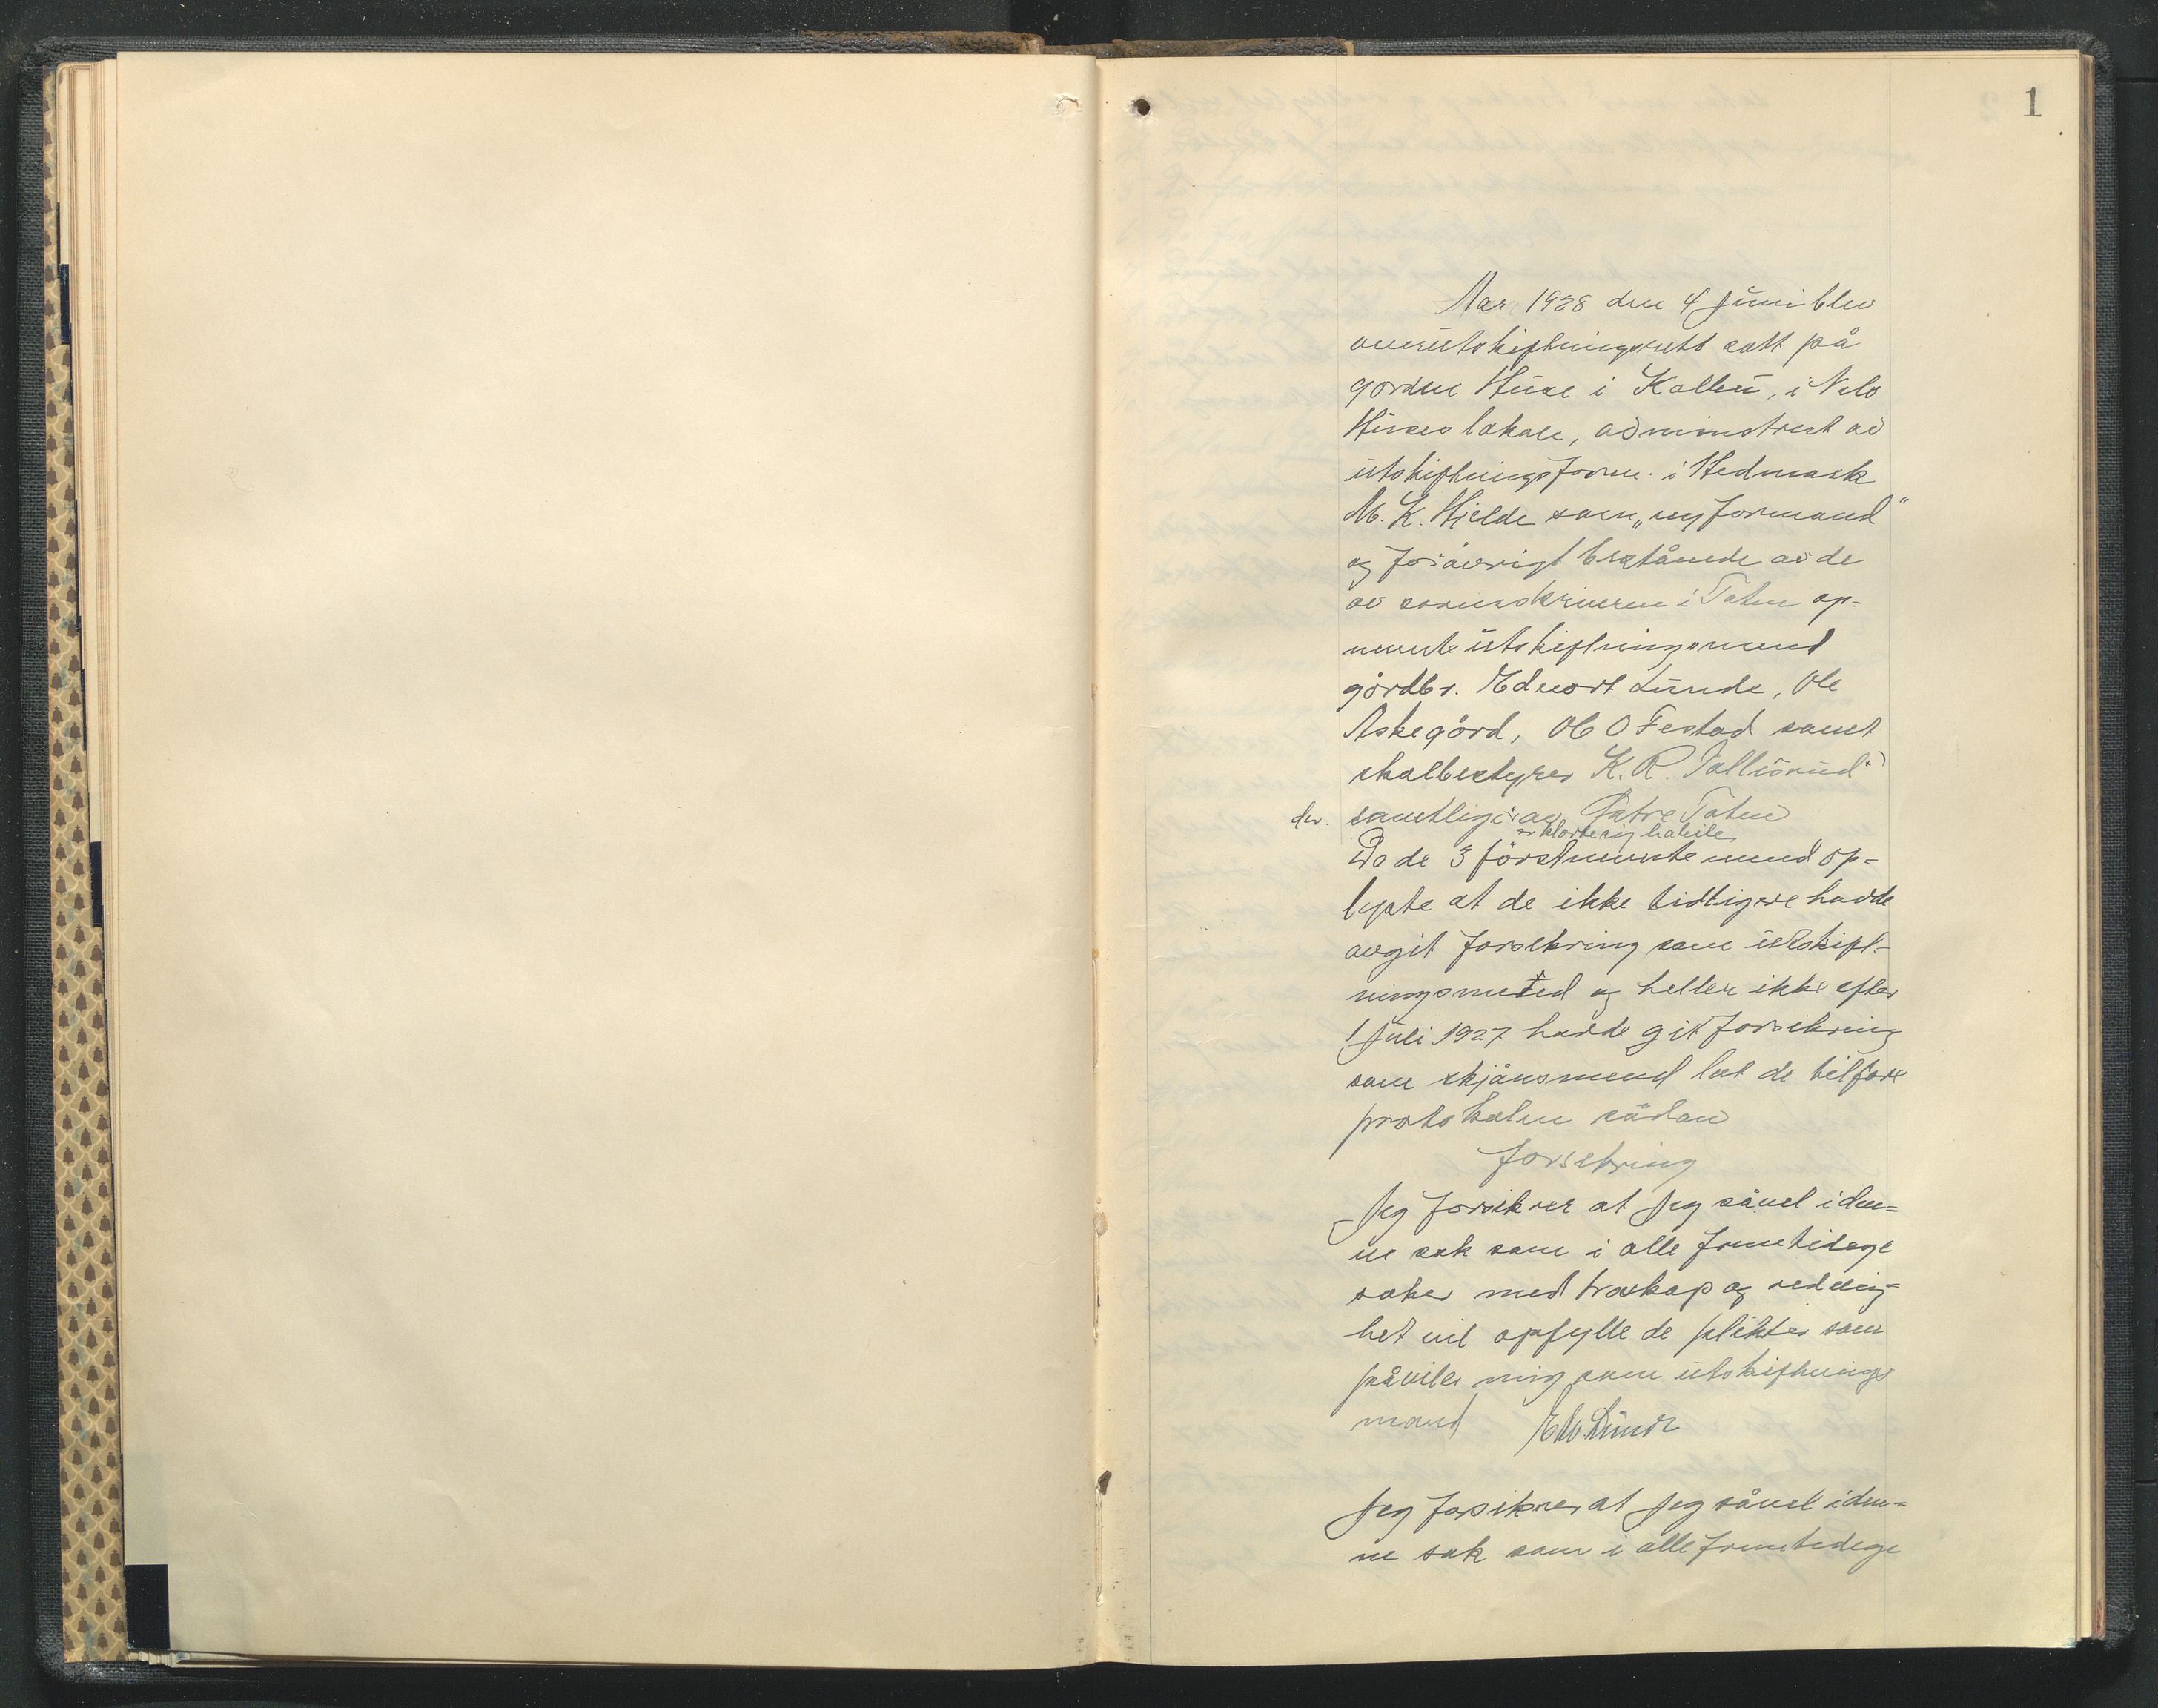 1
Aar 1928 den 4 juni blev
overutskiftningsrett satt på
gården Huse i Kolbu, i Nils
Huses lokale, administrert av
utskiftningsform. i Hedmark
M. K. Hjelde som „ny formand“
og forøvrigt bestående av de
av sorenskriveren i Toten op=
nevnte utskiftningsmend
gårdbr. Edvart Lunde, Ole
Askegård, Ole O Festad samt
skolbestyrer K. R.
der. samtlige av Østre Toten
erklærte sig habile
Da de 3 førstnevnte mend op=
lyste at de ikke tidligere hadde
avgit forsikring som utskift-
ningsmend og heller ikke efter
1 juli 1927 hadde git forsikring
som skjønsmend lot de tilføre
protokolen sådan
forsikring
Jeg forsikrer at jeg såvel i den=
ne sak som i alle fremtidege
saker med troskap og reddelig=
het vil opfylle de plikter som
påviler mig som utskiftnings
mand Edv. Lunde
Jeg forsikrer at jeg såvel i den=
ne sak som i alle fremtidege